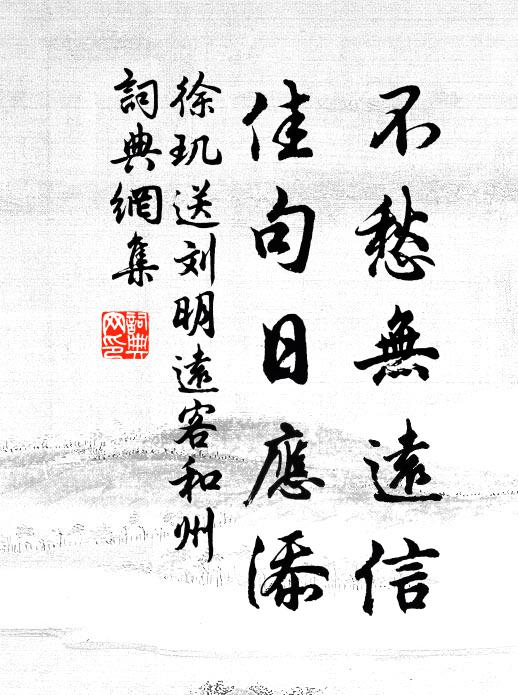 不愁無遠信
佳句日應添
徐玑送刘明遠客和州
詞典網集
詞典网印